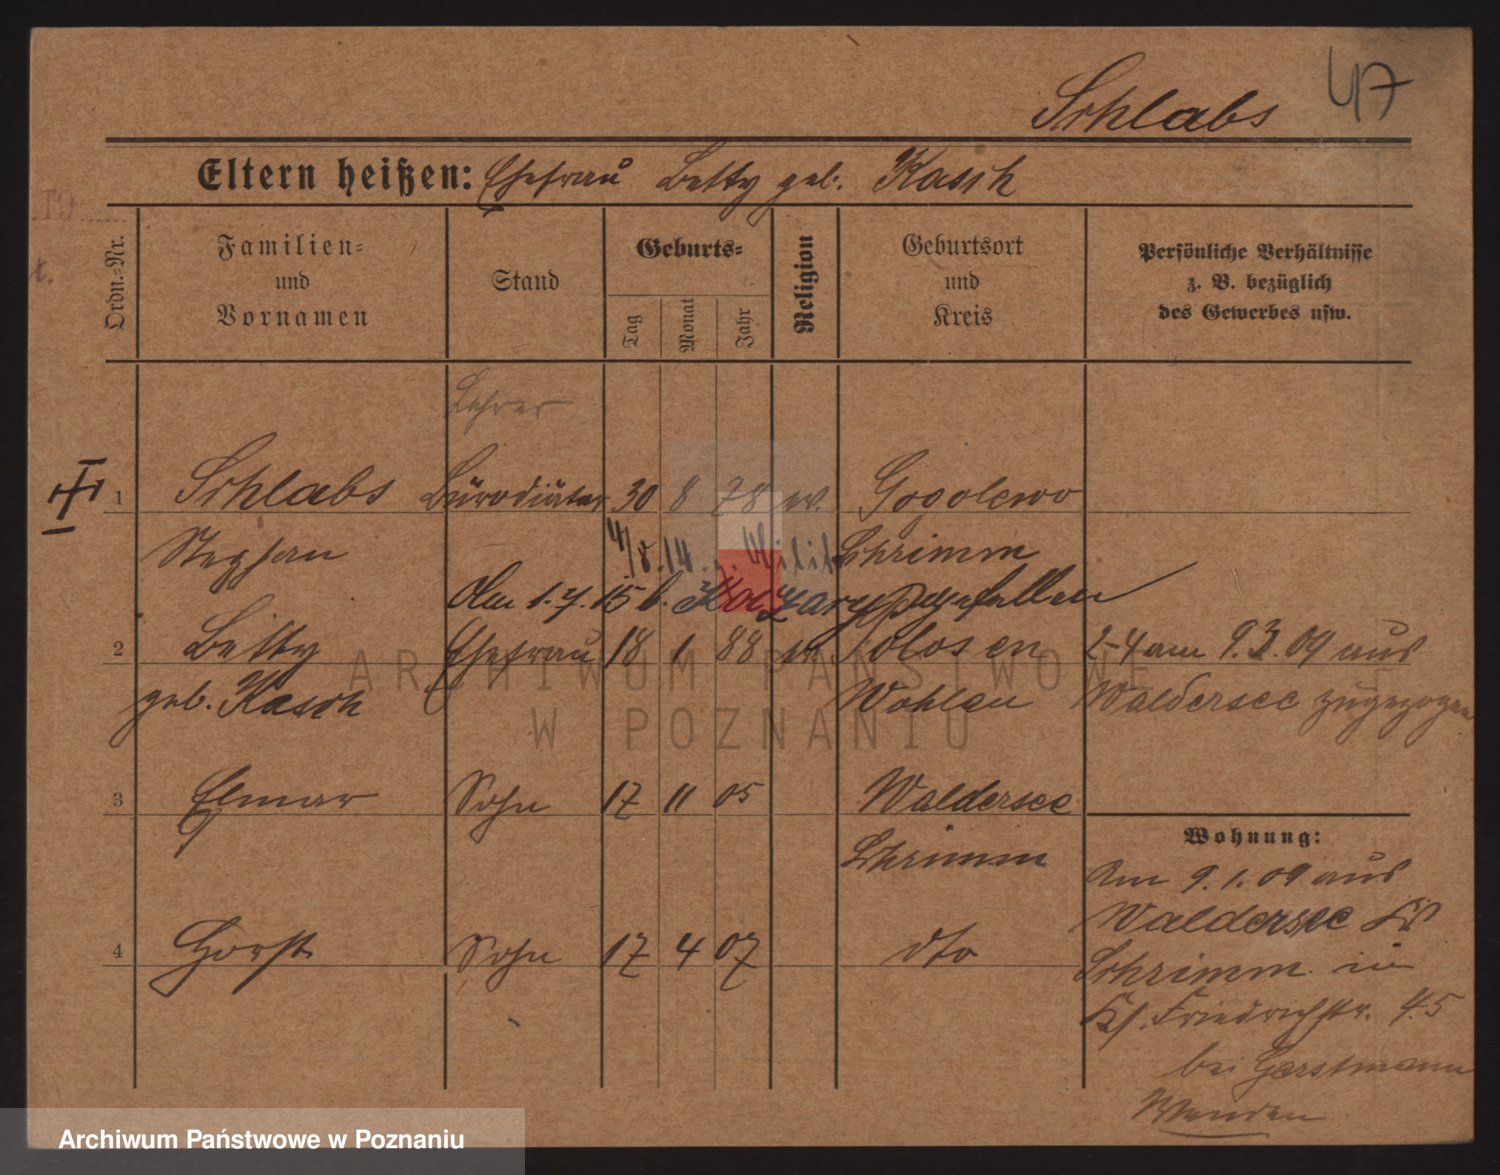 47
Schlabs
Eltern heißen: Ehefrau Betty geb. Kasch
Ordn.-Nr.
Familien-
und
Vornamen
Stand
Geburts-
Tag
Monat
Jahr
Religion
Geburtsort
und
Kreis
Persönliche Verhältnisse
z. B. bezüglich
des Gewerbes usw.
Lehrer
1 Schlabs Bürodiätar 30 8 78 ev. Gogolewo
Stephan Schrimm
4/8.14 z. Milit.
Am 1.7.15 b. gefallen
2 Betty Ehefrau 18 1 88 Polosen 2-4 am 9.3.09 aus
geb. Kasch Wohlau Waldersee zugezogen
3 Elmar Sohn 17 11 05 Waldersee
Schrimm
Wohnung:
Am 9.1.09 aus
Waldersee Krs
4 Horst Sohn 17 4 07 dto
Schrimm in
Friedrichstr. 45
bei Gerstmann
ARCHIWUM PAŃSTWOWE
W POZNANIU
Archiwum Państwowe w Poznaniu